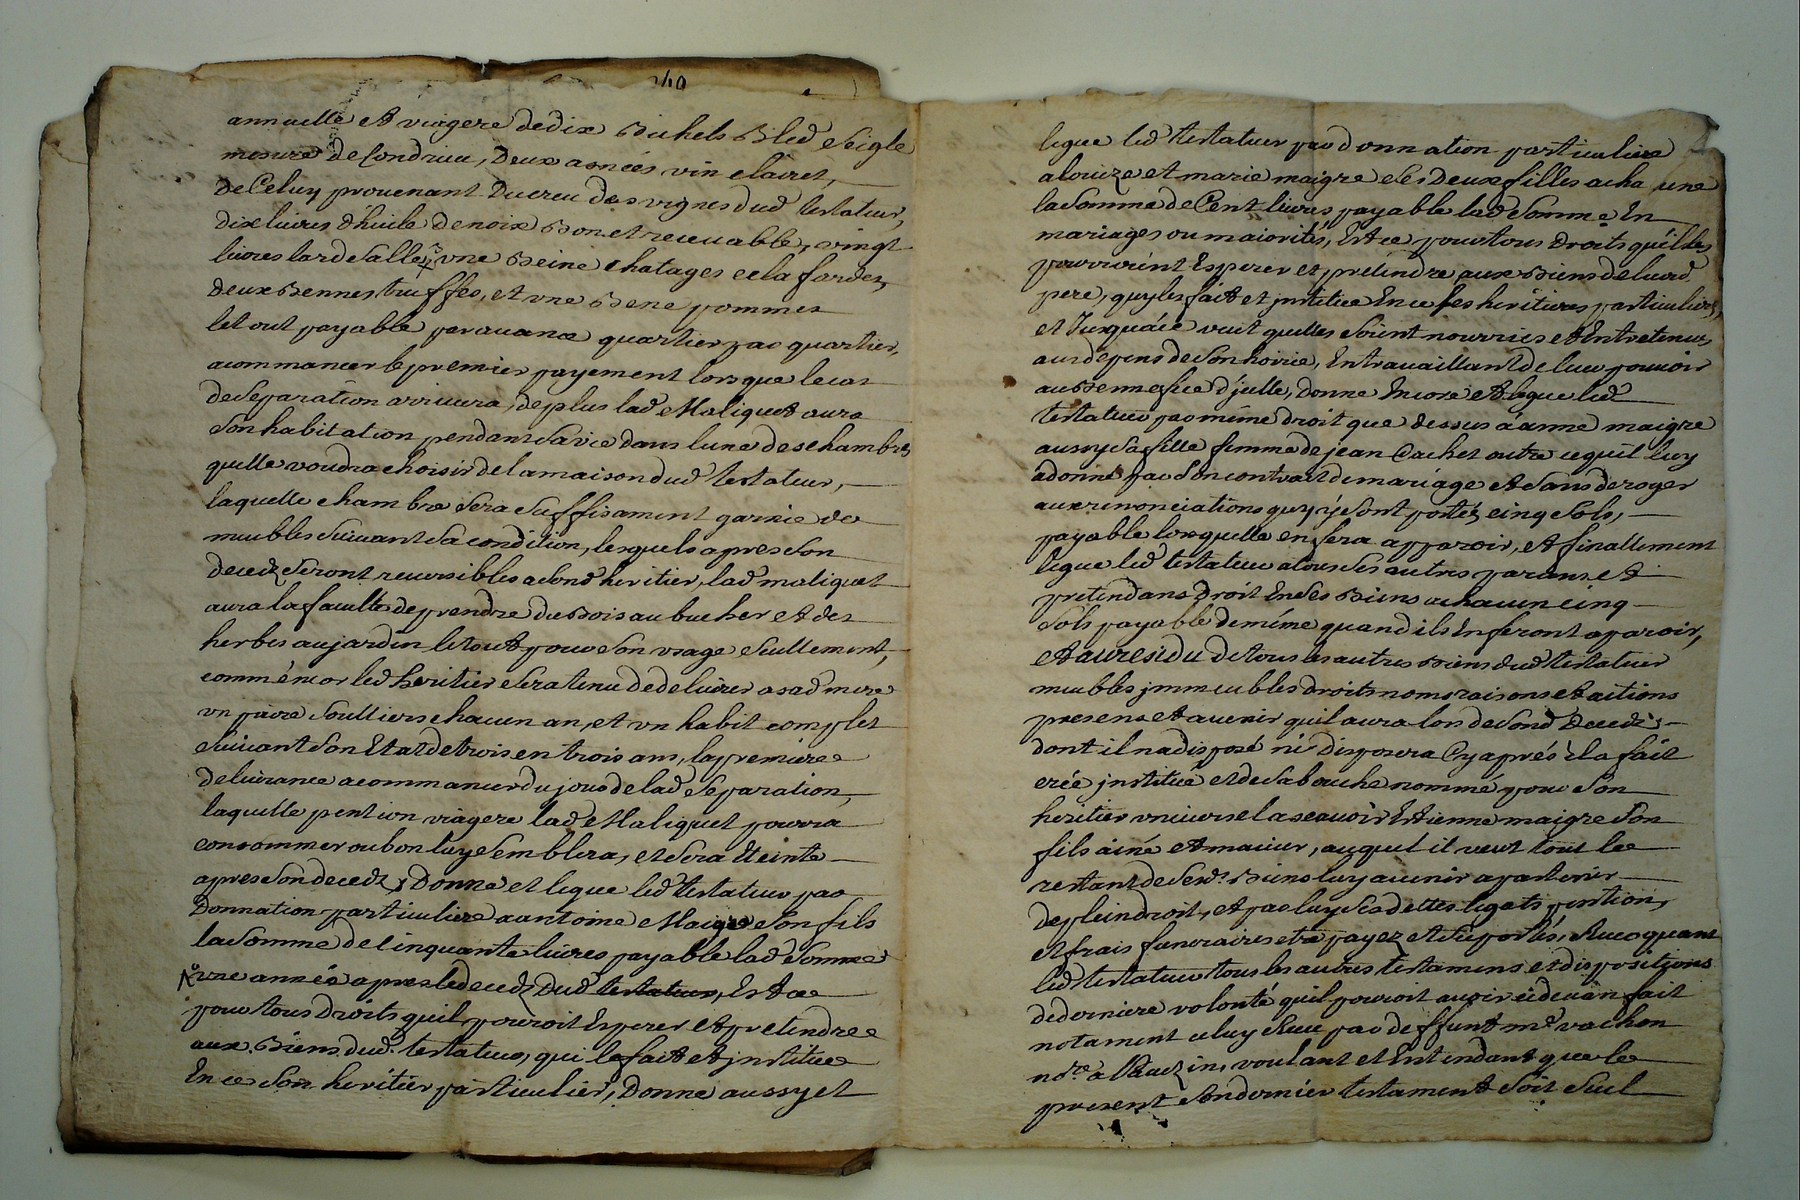 240
annuelle et viagere de dix Bichets Bled Seigle
mesure de Condrieu, Deux asnées vin clairet,
de Celuy provenant Ducreu des vignes dud testateur,
dix livres d'huile de noix Bon et recevable, vingt
livres lard Sallé, une Beine chatages
deux Bennes truffes, et une Bene pommes
le tout payable par avance quartier par quartier,
a commancer le premier payement lors que le cas
de Separation arrivera, de plus lad Maliquet aura
Son habitation pendant Sa vie dans lune des chambres
quelle voudra choisir de la maison dud testateur,
laquelle chambre Sera Suffisament garnie de
meubles Suivant Sa condition, lesquels apres Son
decedz Seront reversibles a Sond heritier, lad maliquet
aura la faculté de prendre du Bois au bucher et des
herbes au jardin le tout pour Son usage Seullement,
comm'encor led heritier Sera tenu de delivrer a sad mere
un paire Soulliers chacun an, et un habit complet
Suivant Son Etat de trois en trois ans, la premiere
delivrance a commancer du jour de lad Separation,
laquelle pention viagere lad Maliquet pourra
consommer ou bon luy Semblera, et Sera Eteinte
apres Son decedz, Donne et legue led testateur par
Donnation particuliere a antoine Maigre Son fils
la Somme de Cinquante livres payable lad Somme
une année apres le decedz Dud testateur, Et ce
pour tous Droits quil pouroit Esperer et pretendre
aux Biens dud. testateur, qui le fait et jnstitue
En ce Son heritier particulier, Donne aussy et
legue led testateur par donnation particuliere
a louize et marie maigre Ses Deux filles a chacune
la Somme de Cent livres payable lad Somme En
mariages ou maiorités, Et ce pour tous Droits quelles
pourroint Esperer et prétendre aux Biens de leurd
pere, qui les fait et jnstitue En ce ses heritieres particulieres,
et Jusqu'à ce veut quelles Soient nourries et Entretenues
aux depens de Son hoirie, En travaillant de leur pouvoir
au Bennefice d'jcelle, Donne Encore et legue led
testateur par méme droit que dessus à anne maigre
aussy Sa fille femme de jean Cachet outre ce quil luy
à donné par Son contract de mariage et Sans deroger
aux renonciations quy y Sont portéz cinq Sols,
payable lors quelle en fera apparoir, et finallement
legue led testateur a tous Ses autres parans et
pretendans Droit En Ses Biens a chacun cinq
Sols payable de méme quand ils En feront aparoir,
et au residu De tous les autres Biens dud testateur
meubles jmmeubles droits noms raisons et actions
presens et avenir quil aura lors de Sond Decedz,
dont il na disposé ni Disposera Cy aprés il a fait
créé jnstitué et de Sa bouche nommé pour Son
heritier universel a scavoir Estienne maigre Son
fils ainé et maieur, auquel il veut tout le
restant de Sesd. Biens luy avenir apartenir
de plein droit, et par luy Ses dettes legats pention,
et frais funeraires etre payez et Suportés, Revoquant
led testateur tous les autres testamens et dispositions
de derniere volonté quil pouroit avoir cidevan fait
notament celuy Receu par deffunt me vachon
nore a Pavezin, voulant et Entendant que le
present Son dernier testament Soit Seul